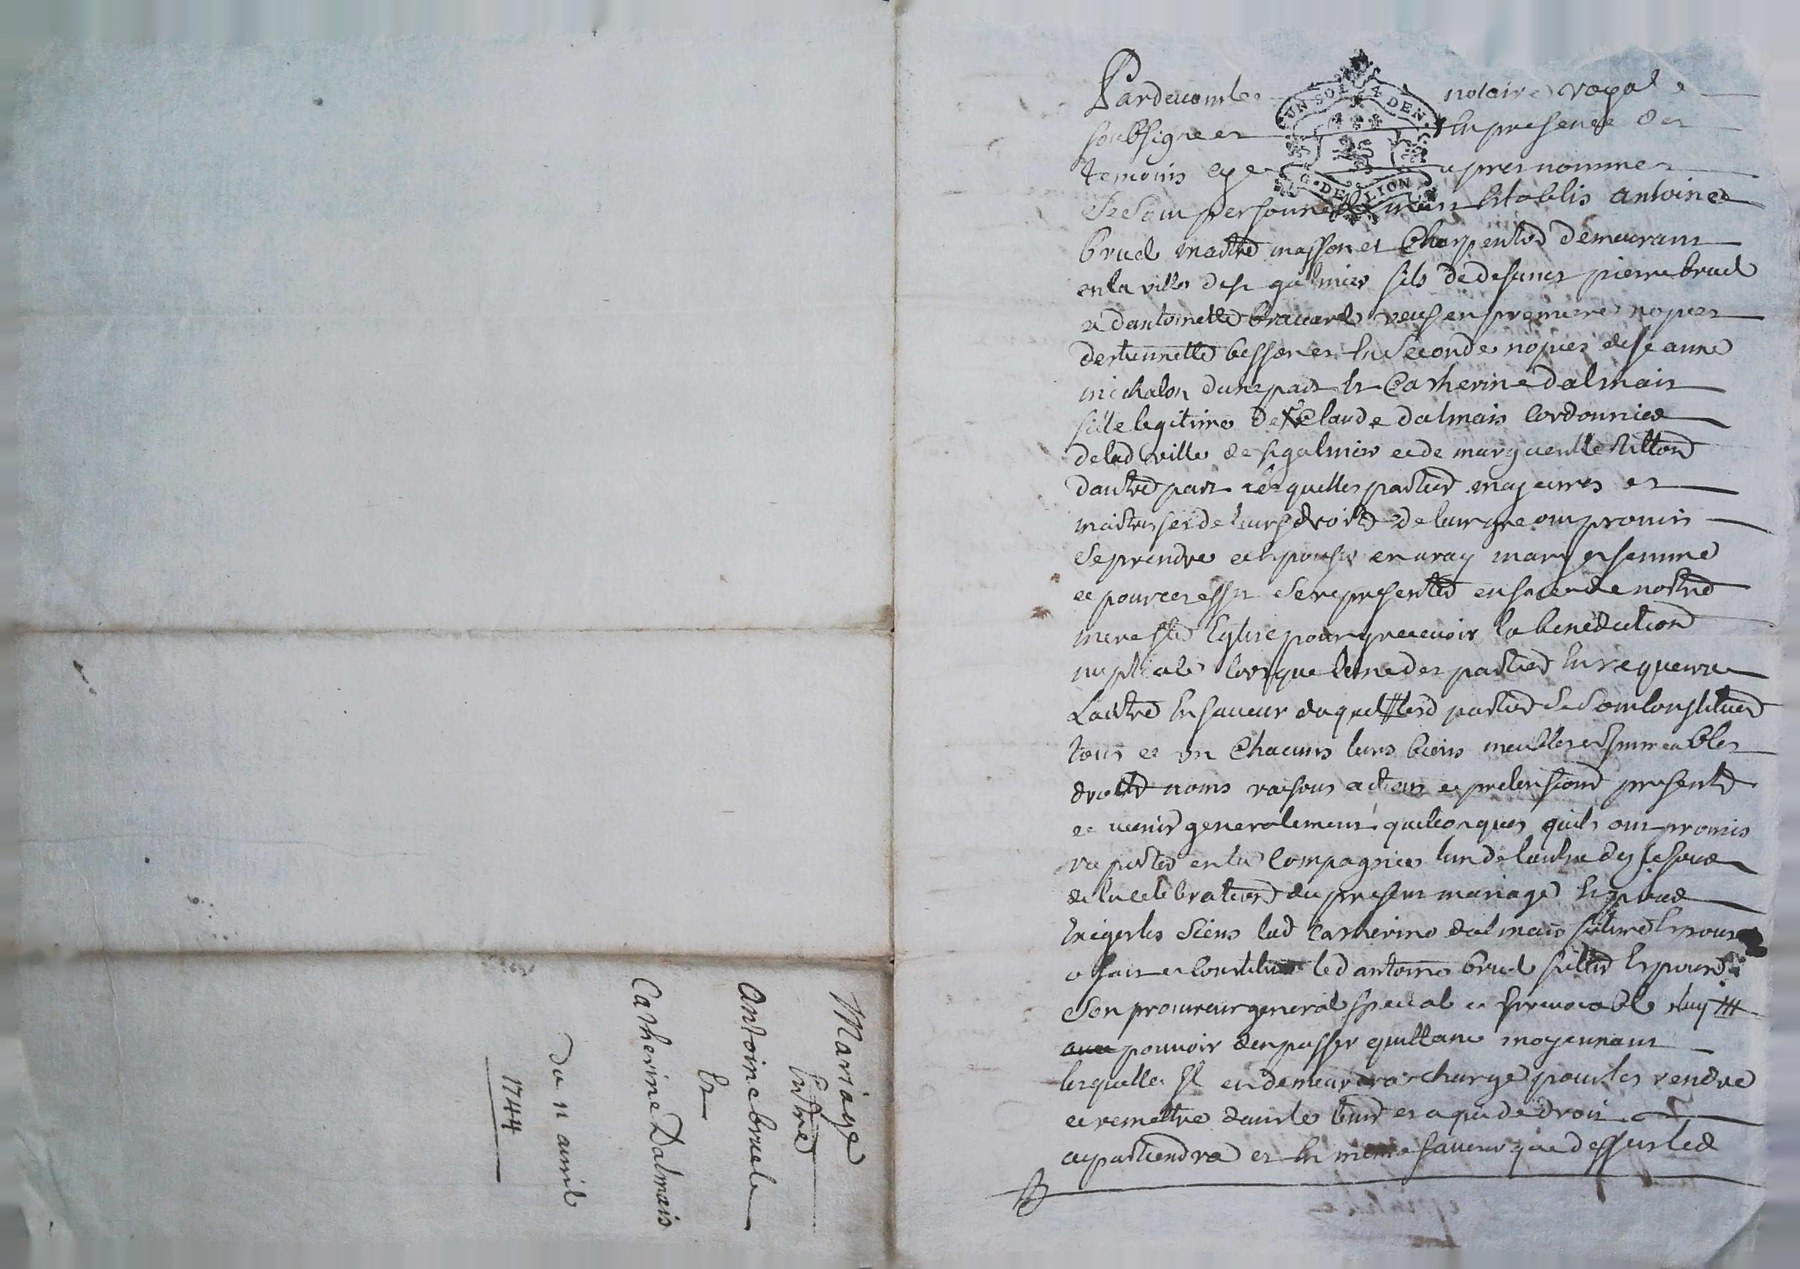 Mariage
Entre
Antoine bruel
Et
Catherine Dalmais
Du 11 avril
1744
Pardevant le notaire royal
soubsigne et En presence des
temoins cy apres nommes
UN SOL 4 DEN.
G. DE LION
Se sont personnellement Etablis antoine
bruel maitre masson et Charpentier demeurant
en la ville de st galmier fils de defunct pierre bruel
et dantoinette veuf en premiere nopces
destiennette besson et En seconde nopces de jeanne
michalon dune part Et Catherine dalmais
fille legitime de Claude dalmais Cordonnier
de lad ville de st galmier et de margueritte
dautre part lesquelles parties majeures et
maitresses de leurs droits de leur gre ont promis
se prendre et Epouser en vray mary et femme
et pour ce se representer en face de nostre
mere ste Eglise pour y recevoir la benediction
nuptiale lorsque lune des parties En requerra
Lautre En faveur duquel lesd parties se sont Constitues
tous et un Chacuns leurs biens meubles et Immeubles
droits noms raisons actions et pretensions presents
et avenir generalement quelconques quils ont promis
raporter en la Compagnie lun de lautre des le jour
de la celebration du present mariage Et pour
Exiger les siens lad Catherine dalmais future Epouse
a fait et Constitue led antoine bruel futur Epoux
son procureur general special et Irrevocable
pouvoir den passer quittance moyennant
lesquelles Il en demeurera charge pour les rendre
et remettre dans le tems et a qui de droit
apartiendra et En meme faveur que dessus led